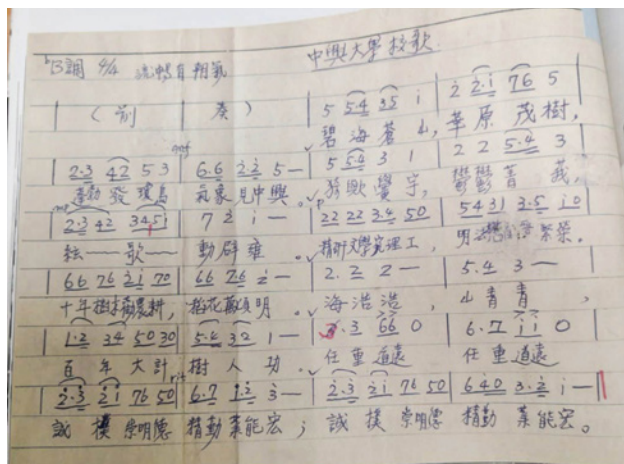 中興大學校歌
ᵇB調 4/4
| (前 奏) | 5 5.4 35 i | 2 2.i 76 5
碧海蒼山，華原茂樹，
| 2.3 42 5 3 | 6.6 2.2 5— | 5 5.4 3 1 | 2 2 5.4 3
蓬勃發環島 氣象見中興。猗歟黌宇，鬱鬱菁莪，
| 2.3 42 34 5 | 7 2 i — | 22 22 3.4 50 | 54 31 3.5 i0
絃—歌— 動辟雍。精研文學究理工，明法 繁榮。
| 66 76 2i 70 | 66 76 2 — | 2. 2 2 — | 5. 4 3 —
十年樹 農耕， 明。海浩浩，山青青，
| 1.2 34 50 30 | 5.4 32 1 — | .3 66 0 | 6.7 ii 0
百年大計 樹人功。任重道遠 任重道遠
| 2.3 2i 76 50 | 6.7 1.2 3— | 2.3 2i 76 50 | 640 3.2 i — ||
誠樸崇明德 精勤業能宏；誠樸崇明德 精勤業能宏。